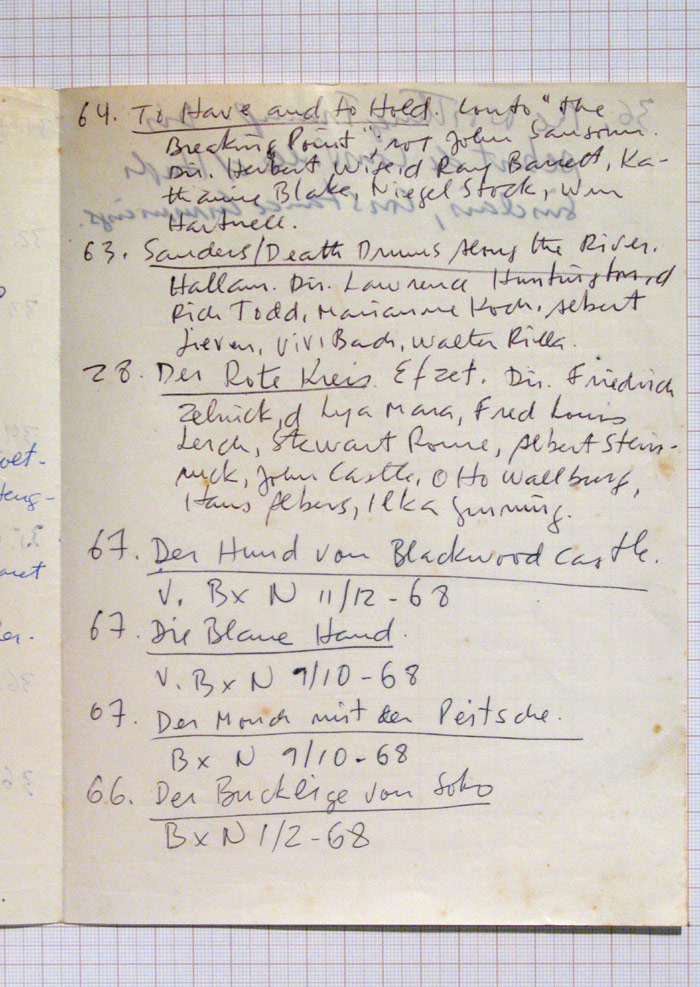 64. To Have and to Hold. Conto "the
Breaking Point", rot John Sansom.
Dir. Herbert Wise, d Ray Barrett, Ka-
tharine Blake, Niegel Stock, Wm
Hartnell.
63. Sanders/Death Drums Along the River.
Hallam. Dir. Lawrence Huntington, d
Rich Todd, Marianne Koch, Albert
Lieven, Vivi Bach, Walter Rilla.
28. Der Rote Kreis. Efzet. Dir. Friedrich
Zelnick, d Lya Mara, Fred Louis
Lerch, Stewart Rome, Albert Stein-
ruck, John Castle, Otto Wallburg,
Hans Albers, Ilka Gruning.
67. Der Hund von Blackwood Castle.
V. BxN 11/12-68
67. Die Blaue Hand.
V. BxN 9/10-68
67. Der Monch mit der Peitsche.
BxN 9/10-68
66. Der Bucklige von Soho
BxN 1/2-68